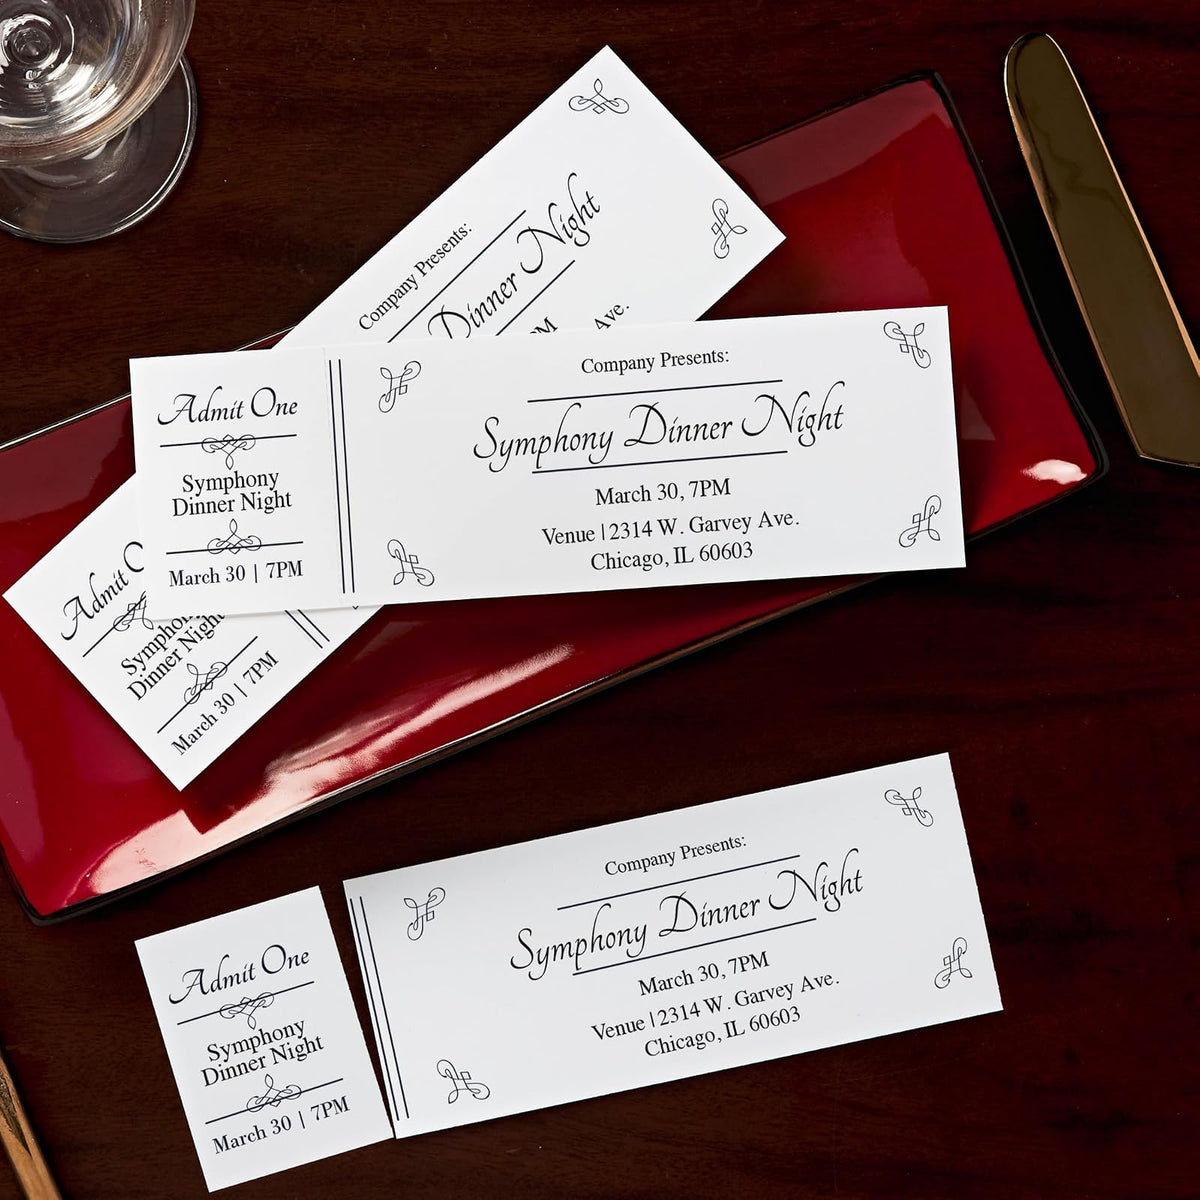 Company Presents:
Dinner Night
PM
Ave.
Admit One
Symphony
Dinner Night
March 30 | 7PM
Company Presents:
Symphony Dinner Night
March 30, 7PM
Venue | 2314 W. Garvey Ave.
Chicago, IL 60603
Admit O
Symphony
Dinner Night
March 30 | 7PM
Admit One
Symphony
Dinner Night
March 30 | 7PM
Company Presents:
Symphony Dinner Night
March 30, 7PM
Venue | 2314 W. Garvey Ave.
Chicago, IL 60603